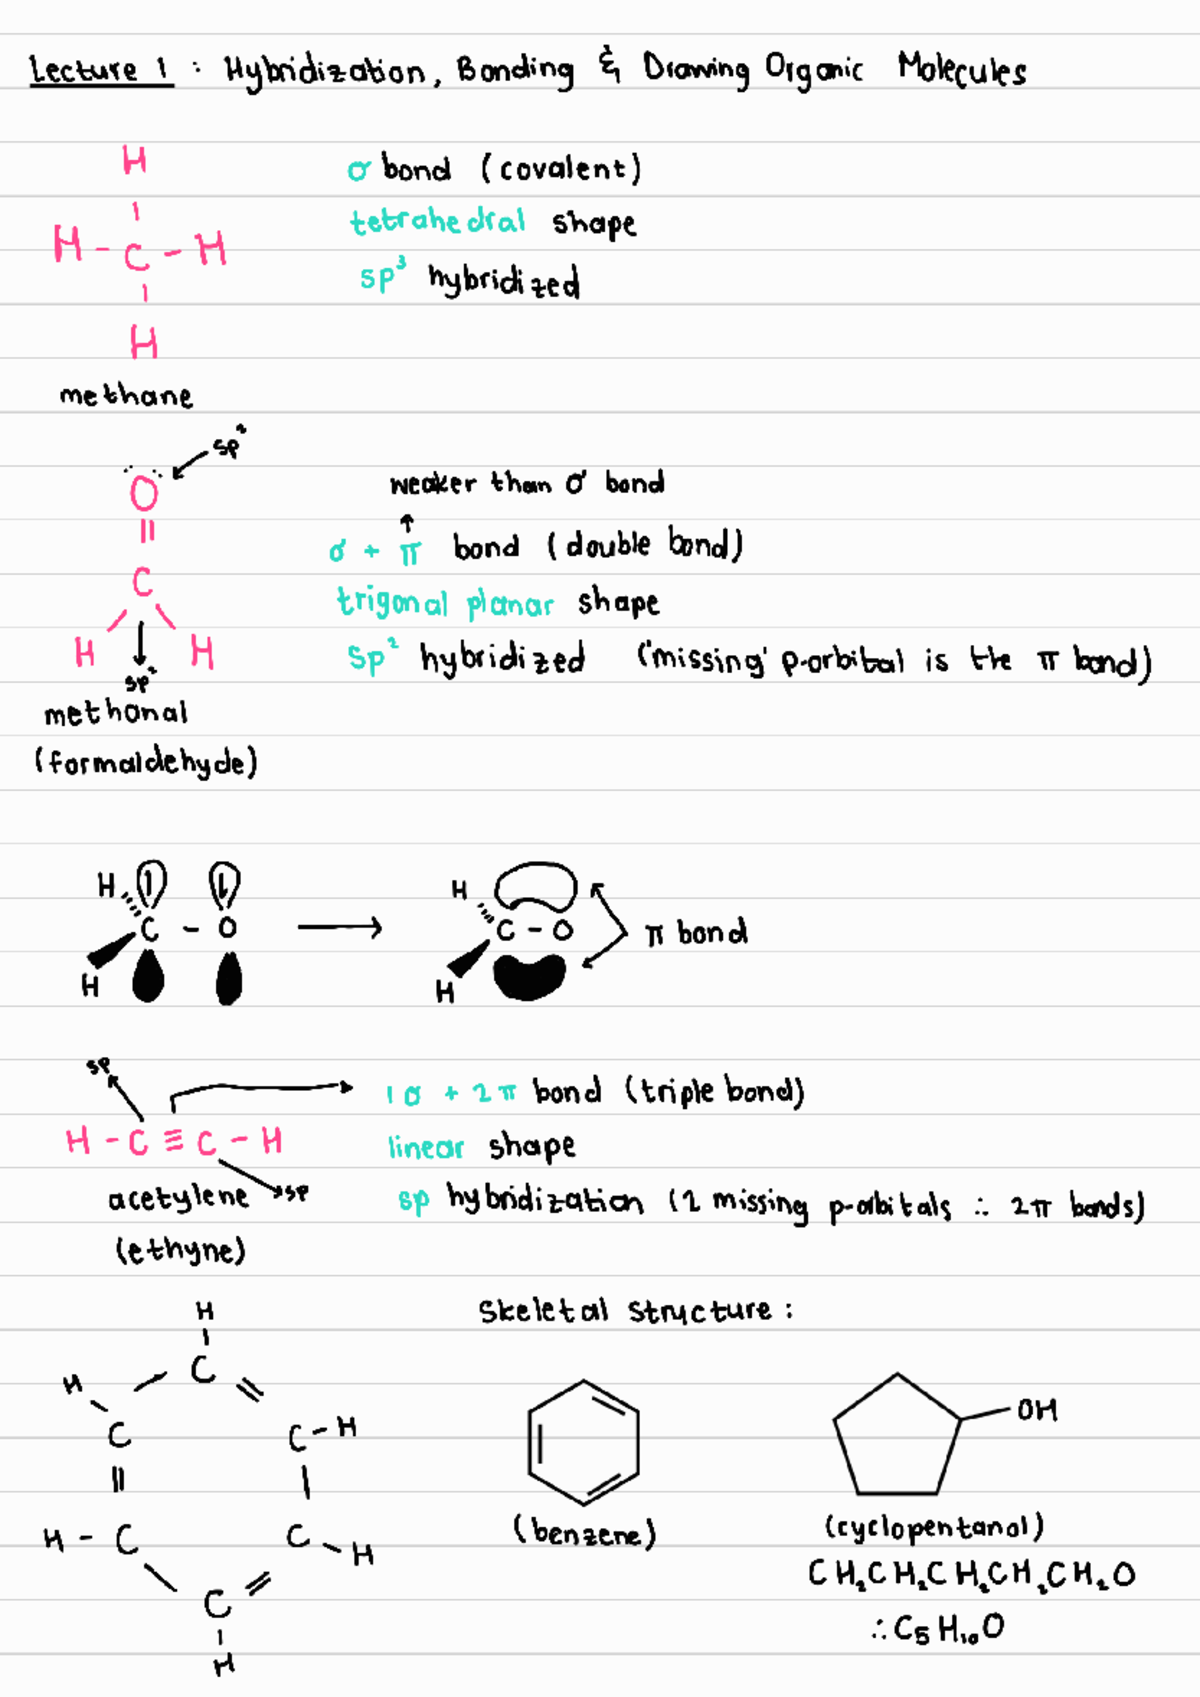 Lecture 1 : Hybridization, Bonding & Drawing Organic Molecules
H
H - C - H
H
methane
σ bond (covalent)
tetrahedral shape
sp³ hybridized
sp²
O
||
C
H H
sp²
methanal
(formaldehyde)
weaker than σ bond
↑
σ + π bond (double bond)
trigonal planar shape
sp² hybridized ('missing' p-orbital is the π bond)
H
C - O
H
→
H
C - O
H
π bond
sp
H - C ≡ C - H
sp
acetylene
(ethyne)
1σ + 2π bond (triple bond)
linear shape
sp hybridization (2 missing p-orbitals ∴ 2π bonds)
H
C
H
C
C - H
H - C
C - H
C
H
Skeletal structure :
(benzene)
OH
(cyclopentanol)
CH₂CH₂CH₂CH₂CH₂O
∴ C₅H₁₀O